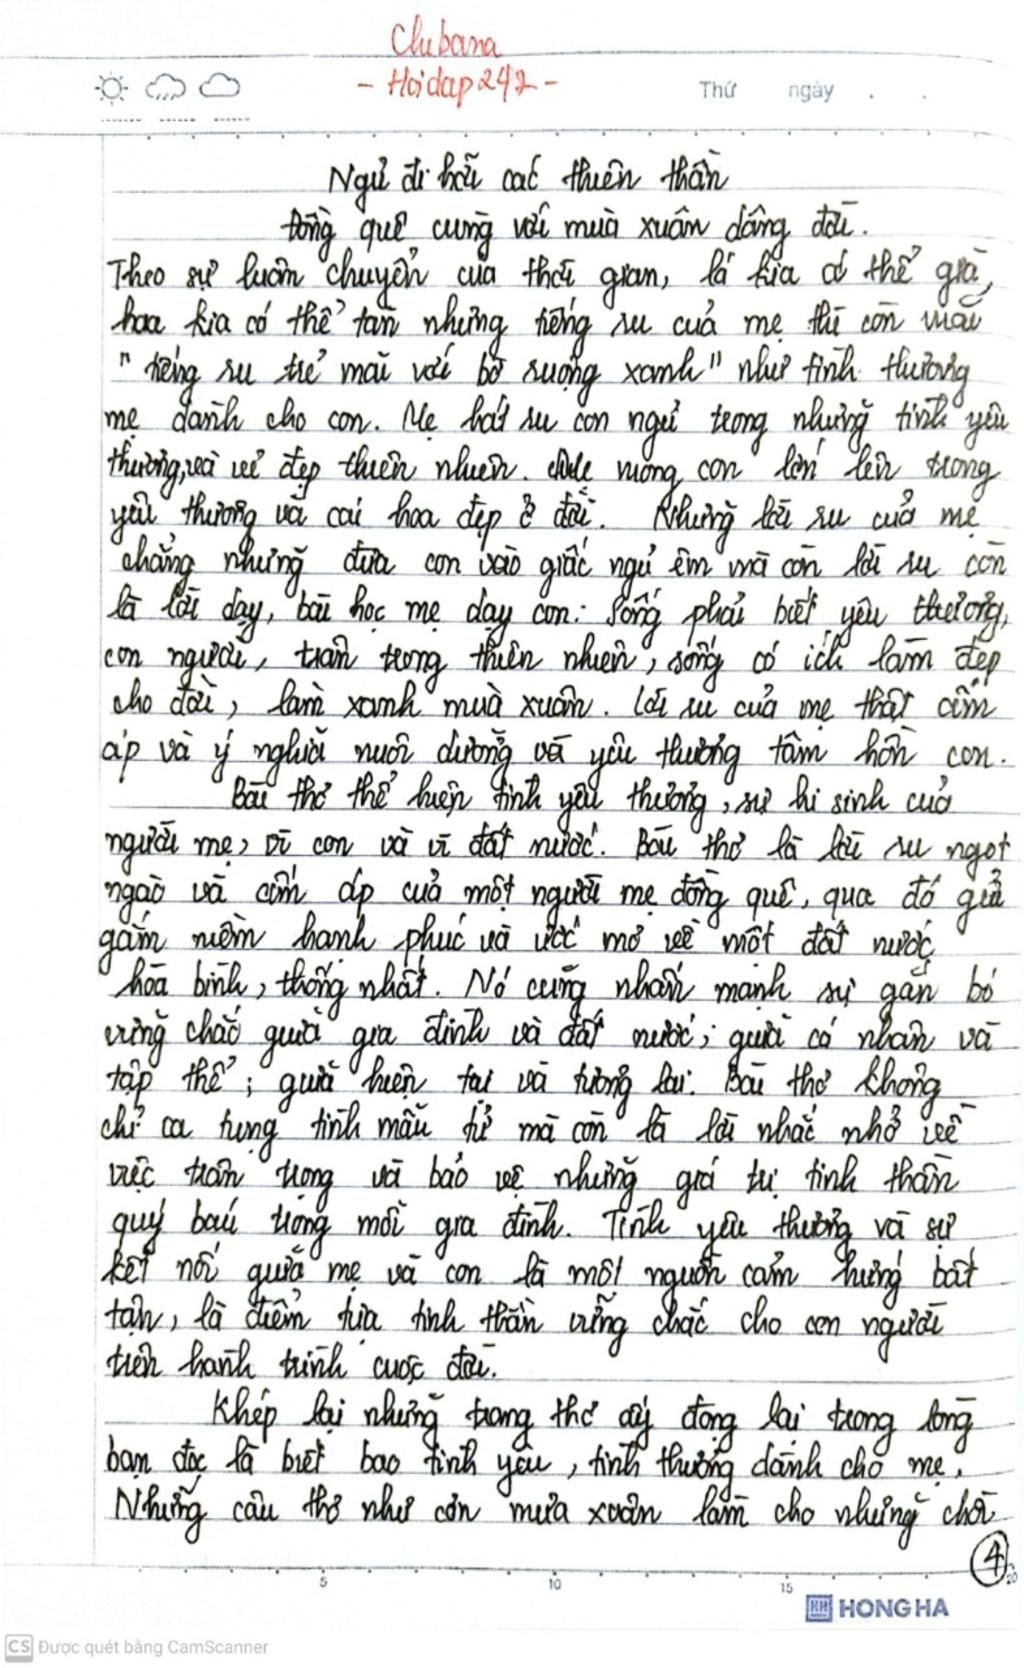 Clubana
- Hoidap242 -
Thứ ngày . .
Ngủ đi hỡi các thiên thần
Đồng quê cùng với mùa xuân dâng đời.
Theo sự luân chuyển của thời gian, lá kia có thể già,
hoa kia có thể tàn nhưng tiếng ru của mẹ thì còn mãi
"tiếng ru trẻ mãi với bờ ruộng xanh" như tình thương
mẹ dành cho con. Mẹ hát ru con ngủ trong những tình yêu
thương, và vẻ đẹp thiên nhiên. mong con lớn lên trong
yêu thương và cái hoa đẹp ở đời. Những lời ru của mẹ
chẳng những đưa con vào giấc ngủ êm mà còn lời ru còn
là lời dạy, bài học mẹ dạy con: sống phải biết yêu thương,
con người, trân trọng thiên nhiên, sống có ích làm đẹp
cho đời, làm xanh mùa xuân. Lời ru của mẹ thật ấm
áp và ý nghĩa nuôi dưỡng và yêu thương tâm hồn con.
Bài thơ thể hiện tình yêu thương, sự hi sinh của
người mẹ, vì con và vì đất nước. Bài thơ là lời ru ngọt
ngào và ấm áp của một người mẹ đồng quê, qua đó gửi
gắm niềm hạnh phúc và ước mơ về một đất nước
hòa bình, thống nhất. Nó cũng nhấn mạnh sự gắn bó
vững chắc giữa gia đình và đất nước; giữa cá nhân và
tập thể; giữa hiện tại và tương lai. Bài thơ không
chỉ ca tụng tình mẫu tử mà còn là lời nhắc nhở về
việc trân trọng và bảo vệ những giá trị tinh thần
quý báu trong mỗi gia đình. Tình yêu thương và sự
kết nối giữa mẹ và con là một nguồn cảm hứng bất
tận, là điểm tựa tinh thần vững chắc cho con người
trên hành trình cuộc đời.
Khép lại những trang thơ ấy đọng lại trong lòng
bạn đọc là biết bao tình yêu, tình thương dành cho mẹ.
Những câu thơ như cơn mưa xuân làm cho những chồi
4
5 10 15 20
HH HONG HA
CS Được quét bằng CamScanner